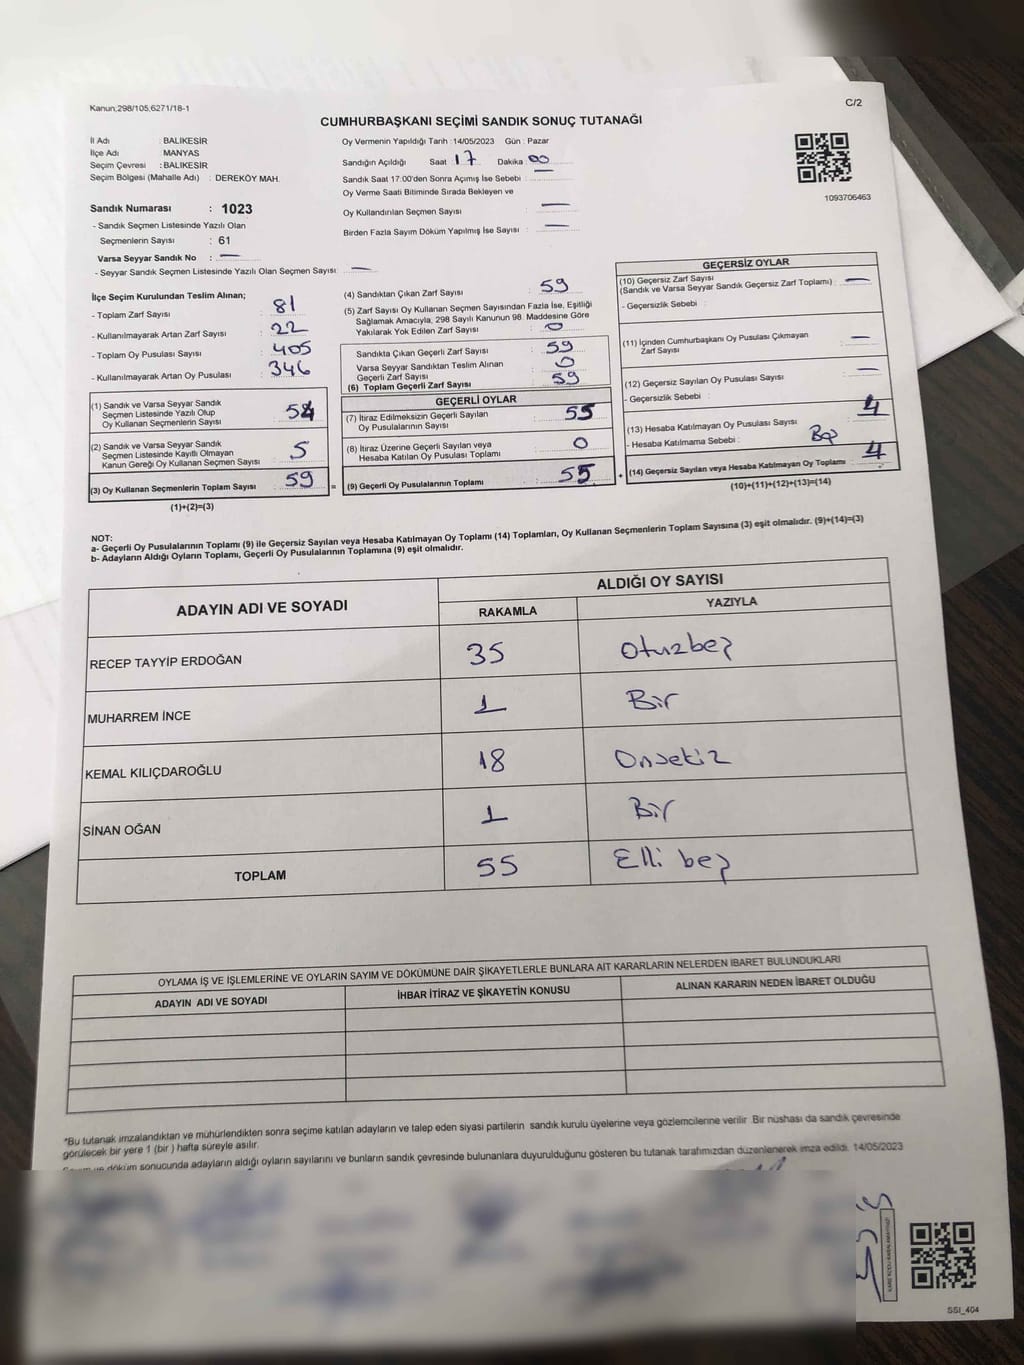 Kanun;298/105,6271/18-1
C/2
CUMHURBAŞKANI SEÇİMİ SANDIK SONUÇ TUTANAĞI
İl Adı : BALIKESİR
İlçe Adı : MANYAS
Seçim Çevresi : BALIKESİR
Seçim Bölgesi (Mahalle Adı) : DEREKÖY MAH.
Sandık Numarası : 1023
- Sandık Seçmen Listesinde Yazılı Olan
Seçmenlerin Sayısı : 61
Varsa Seyyar Sandık No : —
- Seyyar Sandık Seçmen Listesinde Yazılı Olan Seçmen Sayısı: —
Oy Vermenin Yapıldığı Tarih : 14/05/2023 Gün : Pazar
Sandığın Açıldığı Saat 17 Dakika 00
Sandık Saat 17:00'den Sonra Açımış İse Sebebi : —
Oy Verme Saati Bitiminde Sırada Bekleyen ve
Oy Kullandırılan Seçmen Sayısı —
Birden Fazla Sayım Döküm Yapılmış İse Sayısı : —
1093706463
İlçe Seçim Kurulundan Teslim Alınan;
- Toplam Zarf Sayısı : 81
- Kullanılmayarak Artan Zarf Sayısı : 22
- Toplam Oy Pusulası Sayısı : 405
- Kullanılmayarak Artan Oy Pusulası : 346
(1) Sandık ve Varsa Seyyar Sandık
Seçmen Listesinde Yazılı Olup
Oy Kullanan Seçmenlerin Sayısı : 54
(2) Sandık ve Varsa Seyyar Sandık
Seçmen Listesinde Kayıtlı Olmayan
Kanun Gereği Oy Kullanan Seçmen Sayısı : 5
(3) Oy Kullanan Seçmenlerin Toplam Sayısı : 59
(1)+(2)=(3)
(4) Sandıktan Çıkan Zarf Sayısı : 59
(5) Zarf Sayısı Oy Kullanan Seçmen Sayısından Fazla İse, Eşitliği
Sağlamak Amacıyla; 298 Sayılı Kanunun 98. Maddesine Göre
Yakılarak Yok Edilen Zarf Sayısı : 0
Sandıkta Çıkan Geçerli Zarf Sayısı : 59
Varsa Seyyar Sandıktan Teslim Alınan
Geçerli Zarf Sayısı : 0
(6) Toplam Geçerli Zarf Sayısı : 59
GEÇERLİ OYLAR
(7) İtiraz Edilmeksizin Geçerli Sayılan
Oy Pusulasının Sayısı : 55
(8) İtiraz Üzerine Geçerli Sayılan veya
Hesaba Katılan Oy Pusulası Toplamı : 0
= (9) Geçerli Oy Pusulalarının Toplamı : 55 +
GEÇERSİZ OYLAR
(10) Geçersiz Zarf Sayısı
(Sandık ve Varsa Seyyar Sandık Geçersiz Zarf Toplamı) : —
- Geçersizlik Sebebi :
(11) İçinden Cumhurbaşkanı Oy Pusulası Çıkmayan
Zarf Sayısı : —
(12) Geçersiz Sayılan Oy Pusulası Sayısı : —
- Geçersizlik Sebebi :
(13) Hesaba Katılmayan Oy Pusulası Sayısı : 4
- Hesaba Katılmama Sebebi : Boş
(14) Geçersiz Sayılan veya Hesaba Katılmayan Oy Toplamı : 4
(10)+(11)+(12)+(13)=(14)
NOT:
a- Geçerli Oy Pusulalarının Toplamı (9) ile Geçersiz Sayılan veya Hesaba Katılmayan Oy Toplamı (14) Toplamları, Oy Kullanan Seçmenlerin Toplam Sayısına (3) eşit olmalıdır. (9)+(14)=(3)
b- Adayların Aldığı Oyların Toplamı, Geçerli Oy Pusulalarının Toplamına (9) eşit olmalıdır.
ADAYIN ADI VE SOYADI ALDIĞI OY SAYISI
RAKAMLA YAZIYLA
RECEP TAYYİP ERDOĞAN 35 Otuzbeş
MUHARREM İNCE 1 Bir
KEMAL KILIÇDAROĞLU 18 Onsekiz
SİNAN OĞAN 1 Bir
TOPLAM 55 Elli beş
OYLAMA İŞ VE İŞLEMLERİNE VE OYLARIN SAYIM VE DÖKÜMÜNE DAİR ŞİKAYETLERLE BUNLARA AİT KARARLARIN NELERDEN İBARET BULUNDUKLARI
ADAYIN ADI VE SOYADI İHBAR İTİRAZ VE ŞİKAYETİN KONUSU ALINAN KARARIN NEDEN İBARET OLDUĞU
*Bu tutanak imzalandıktan ve mühürlendikten sonra seçime katılan adayların ve talep eden siyasi partilerin sandık kurulu üyelerine veya gözlemcilerine verilir. Bir nüshası da sandık çevresinde
görülecek bir yere 1 (bir ) hafta süreyle asılır.
döküm sonucunda adayların aldığı oyların sayılarını ve bunların sandık çevresinde bulunanlara duyurulduğunu gösteren bu tutanak tarafımızdan düzenlenerek imza edildi. 14/05/2023
SSI_404